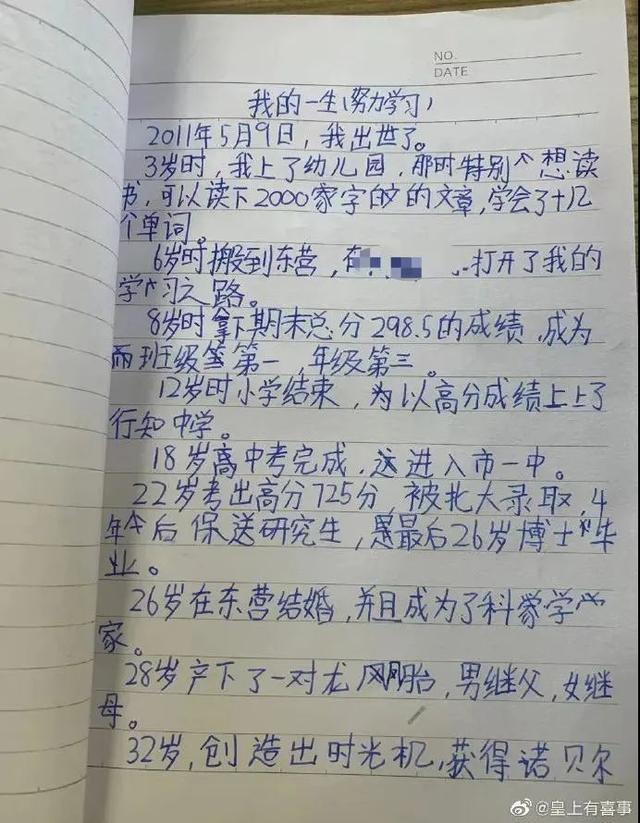 NO.
DATE
我的一生(努力学习)
2011年5月9日，我出世了。
3岁时，我上了幼儿园，那时特别个想读
书，可以读下2000家字的的文章，学会了十几
个单词。
6岁时搬到东营，在 打开了我的
学习之路。
8岁时拿下期末总分298.5的成绩，成为
班级第一，年级第三。
12岁时小学结束，为以高分成绩上上了
行知中学。
18岁高中考完成，进入市一中。
22岁考出高分725分，被北大录取，4
年后保送研究生，最后26岁博士毕
业。
26岁在东营结婚，并且成为了科家学
家。
28岁产下了一对龙凤胎，男继父，女继
母。
32岁，创造出时光机，获得诺贝尔
@皇上有喜事